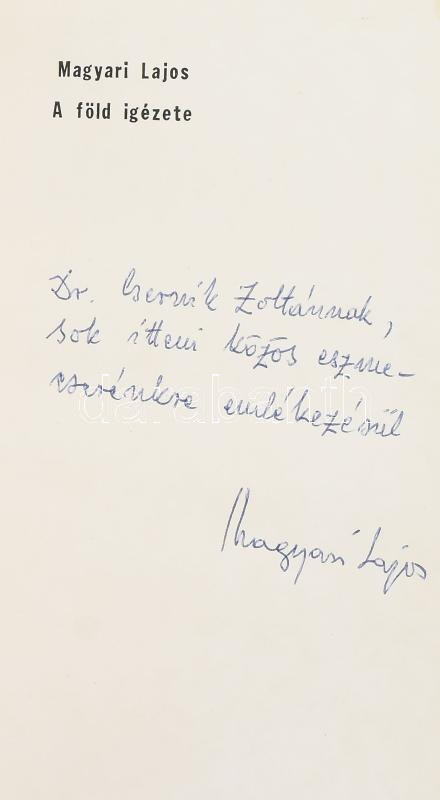 Magyari Lajos
A föld igézete
Dr. Csernik Zoltánnak,
sok itteni közös eszme-
cserénkre emlékezésül
darabanth
Magyari Lajos